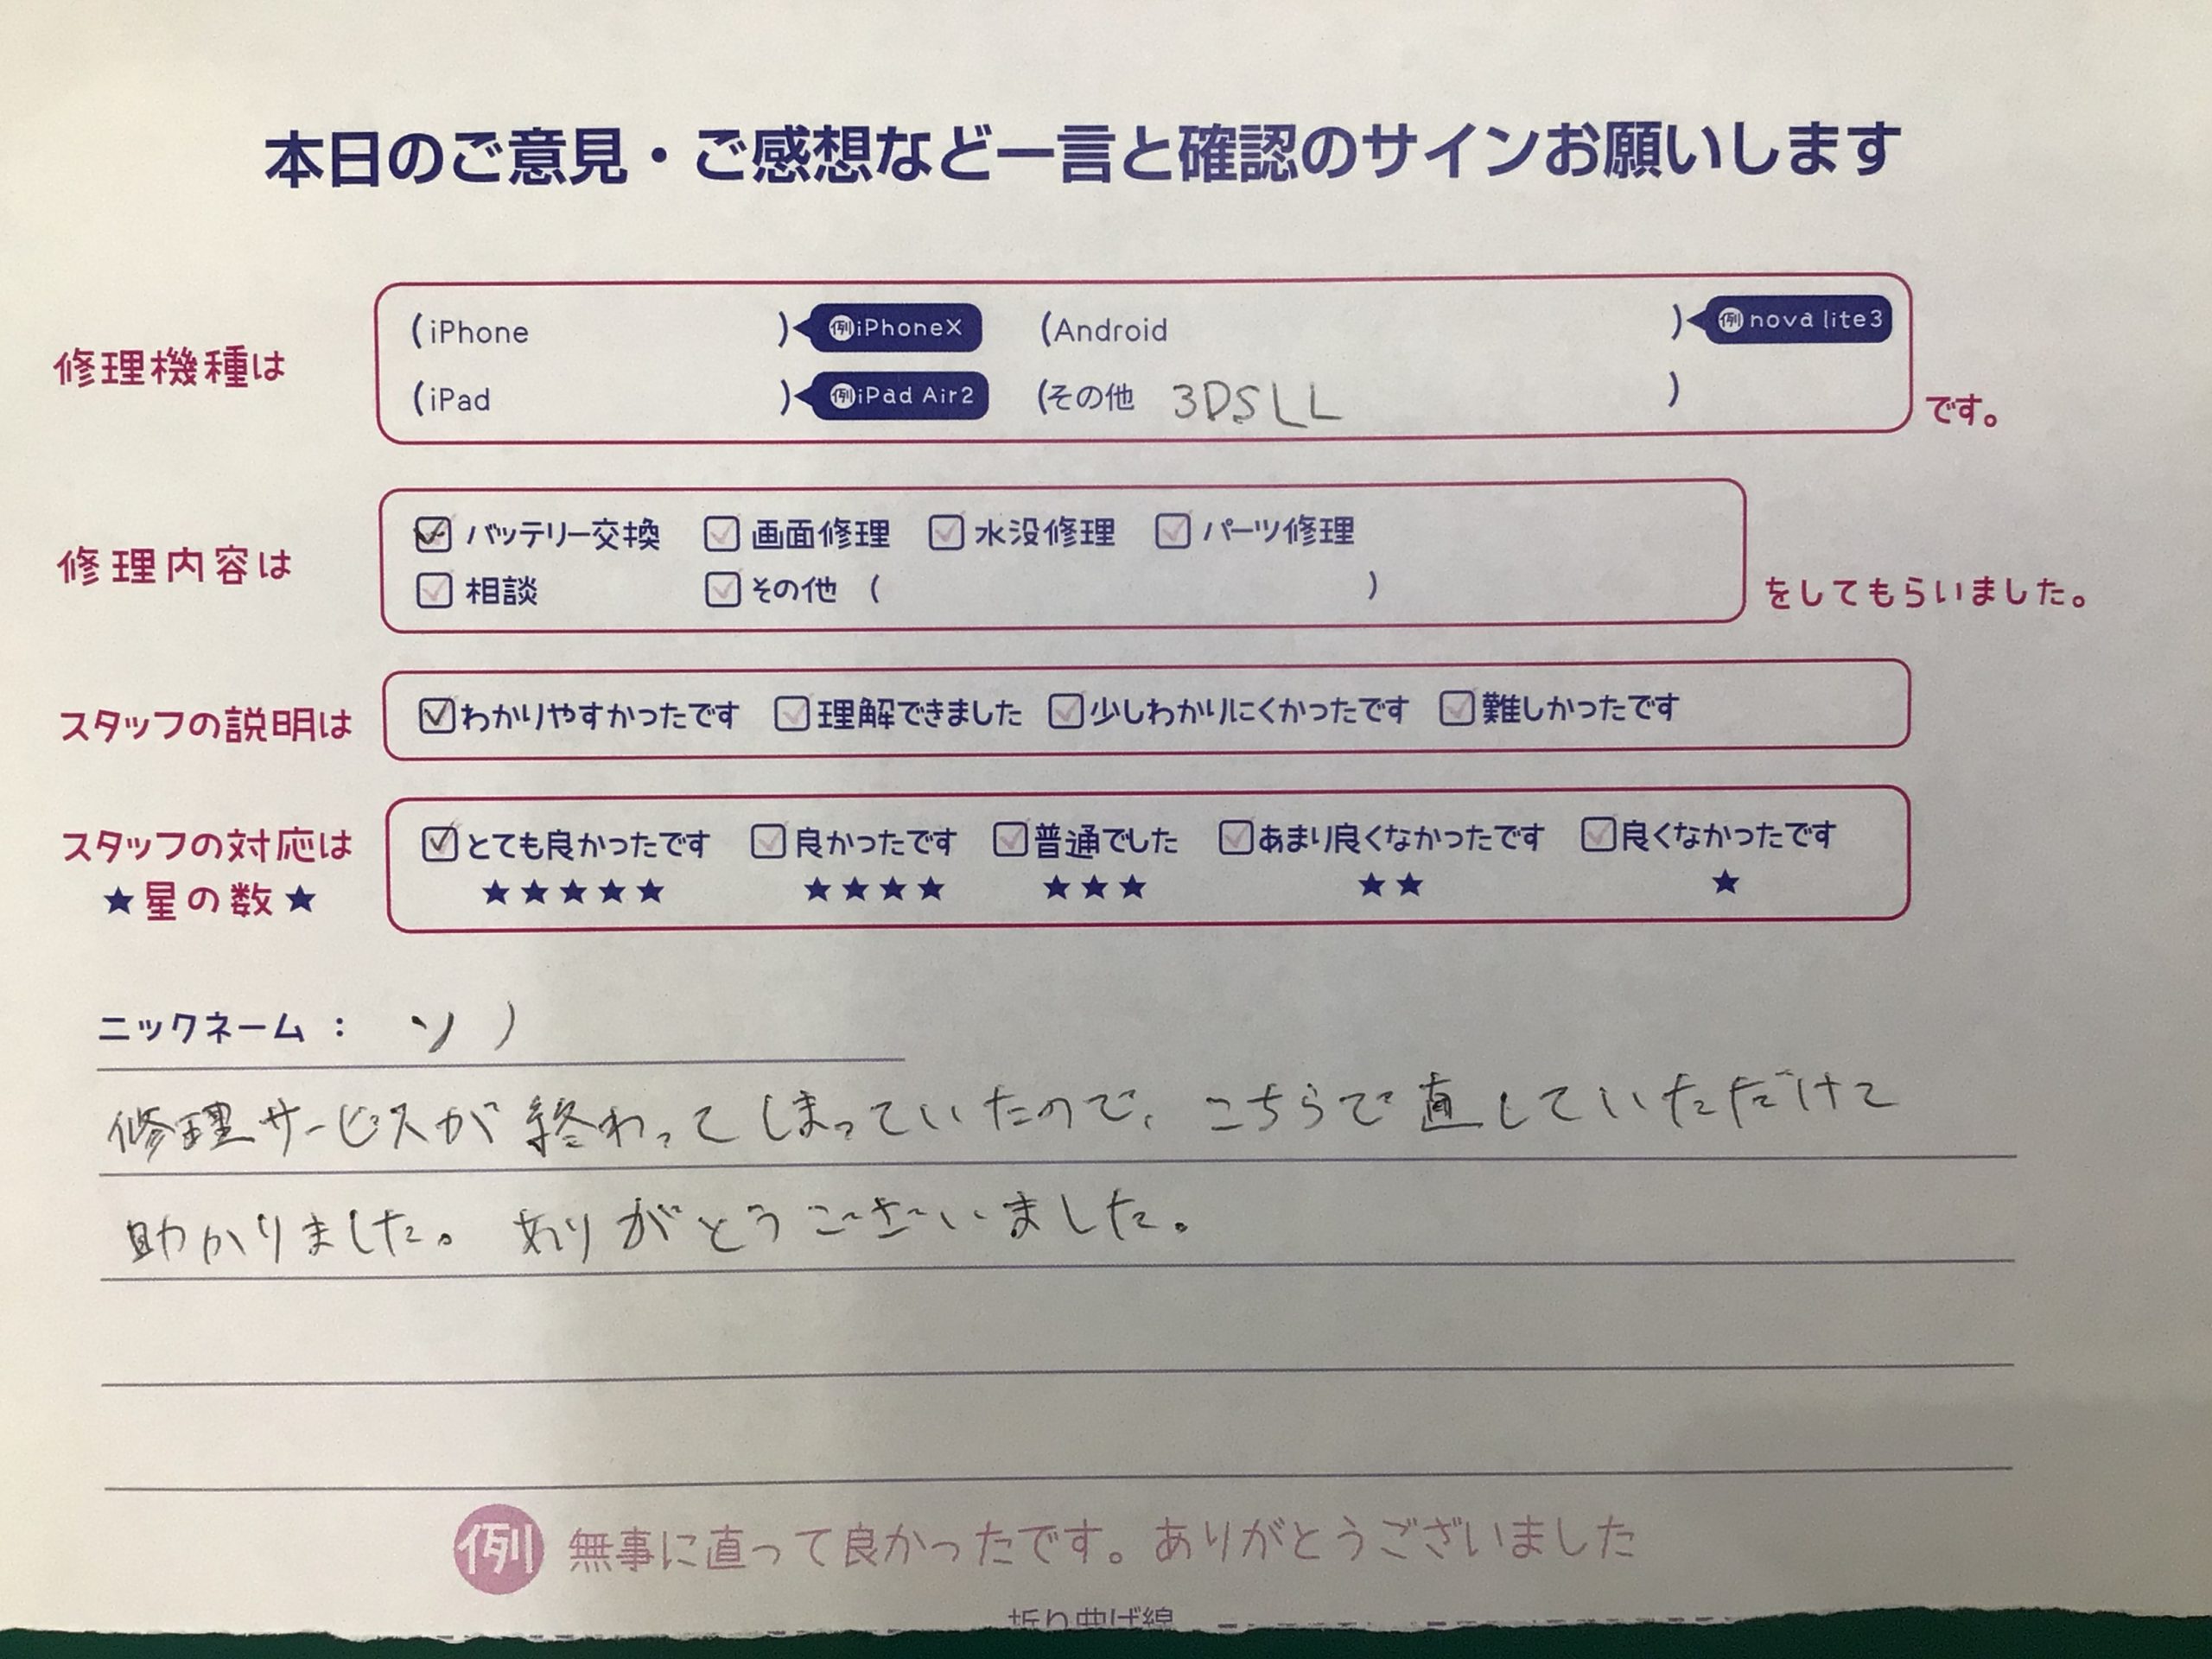 本日のご意見・ご感想など一言と確認のサインお願いします
修理機種は
(iPhone ) 例iPhoneX (Android ) 例nova lite3
(iPad ) 例iPad Air2 (その他 3DSLL ) です。
修理内容は
バッテリー交換 画面修理 水没修理 パーツ修理
相談 その他 ( ) をしてもらいました。
スタッフの説明は わかりやすかったです 理解できました 少しわかりにくかったです 難しかったです
スタッフの対応は とても良かったです 良かったです 普通でした あまり良くなかったです 良くなかったです
★星の数★ ★★★★★ ★★★★ ★★★ ★★ ★
ニックネーム : ソノ
修理サービスが終わってしまっていたので、こちらで直していただけて
助かりました。ありがとうございました。
例 無事に直って良かったです。ありがとうございました
折り曲げ線